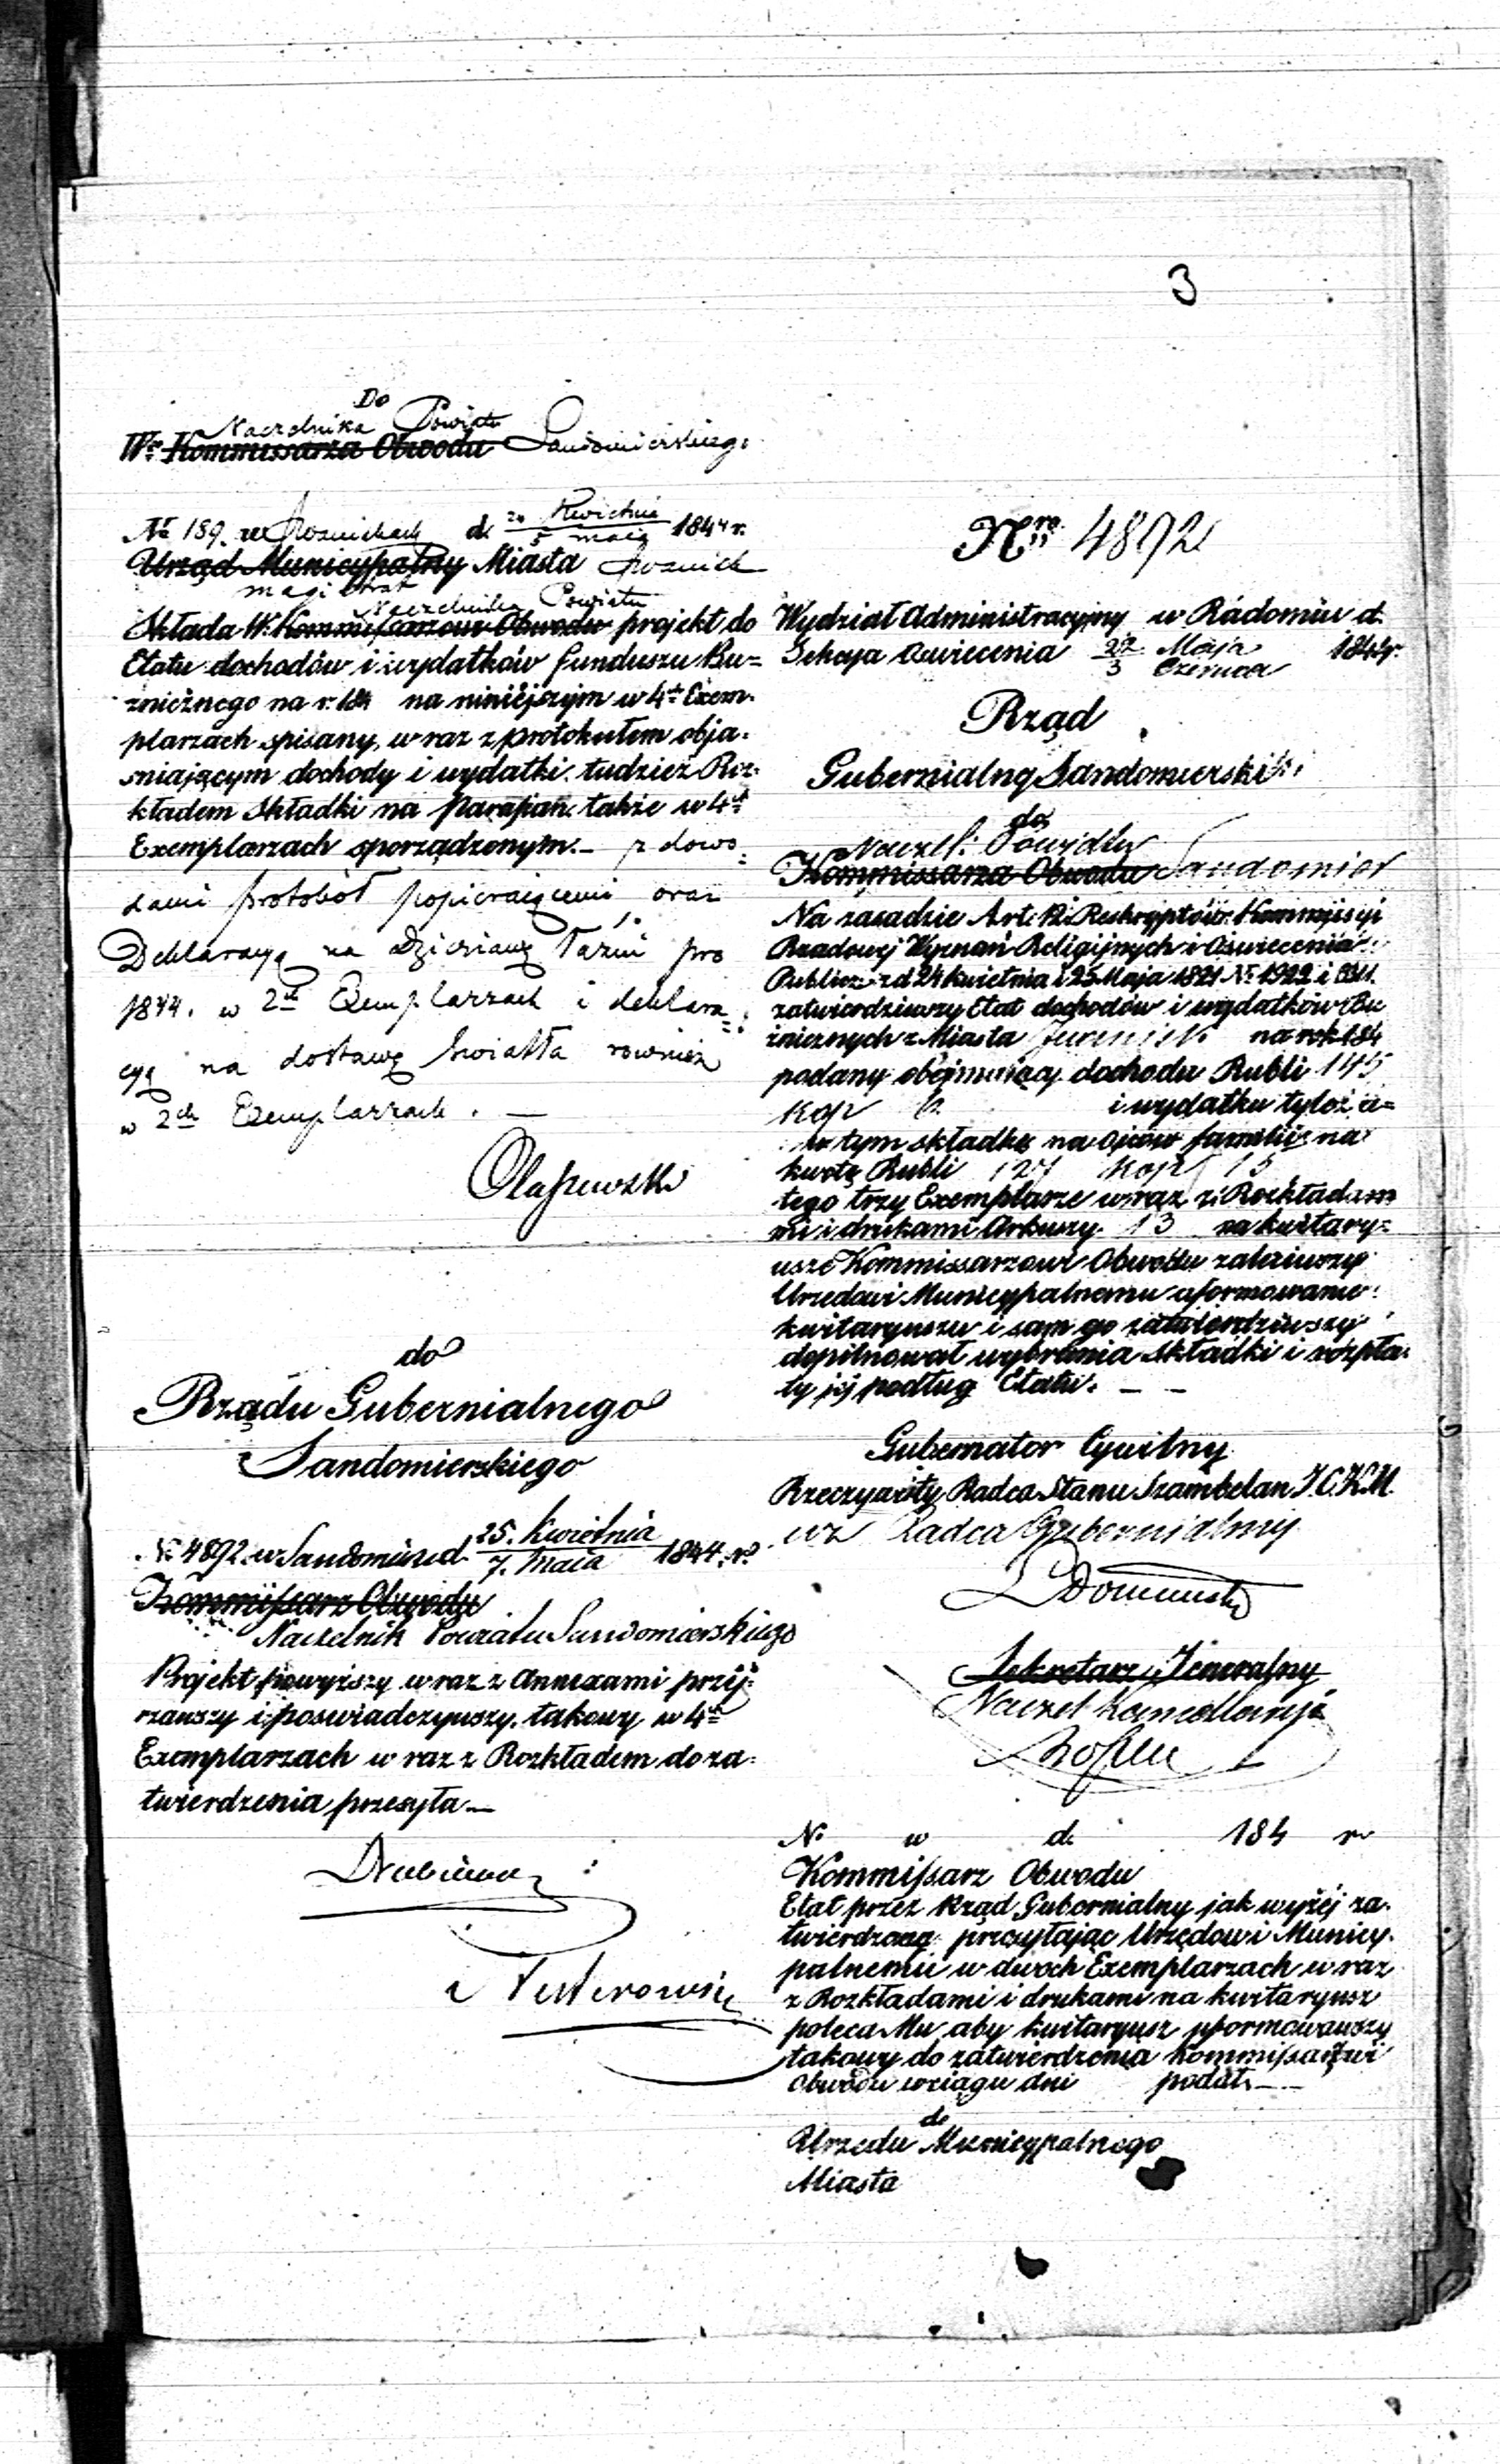 3
Do
Naczelnika Powiatu
Wo Kommissarza Obwodu Sandomierskiego
No 189. w d. 24 Kwietnia 1844 r.
5 maia
Urząd Municypalny Miasta
magistrat
Naczelnika Powiatu
Składa W. Kommissarzowi Obwodu projekt do
Etatu dochodów i wydatków funduszu Bu=
znicznego na r. 184 na niniejszym w 4ch Exem-
plarzach spisany, wraz z protokułem obja-
sniającym dochody i wydatki, tudzież Roz-
kładem Składki na Parafian także w 4ch
Exemplarzach sporządzonym.– z dowo=
dami protokół popieraiącemi oraz
Deklaracyą na dzierżawę Łaźni pro
1844. w 2ch Exemplarzach i deklara=
cyą na dostawę światła również
w 2ch Exemplarzach. —
Olaszewski
do
Rządu Gubernialnego
Sandomierskiego
No 4892 w Sandomierzu d. 25. Kwietnia 1844. r.
7. Maia
Kommissarz Obwodu
Naczelnik Powiatu Sandomierskiego
Projekt powyższy wraz z Annexami przéj-
rzawszy i poswiadczywszy, takowy w 4ch
Exemplarzach wraz z Rozkładem do za-
twierdzenia przesyła —
Nro 4892
Wydział Administracyjny w Radomiu d.
Sekcya Oswiecenia 22 Maja 1844 r.
3 Czerwca
Rząd
Gubernialny Sandomierski
do
Naczel: Powiatu
Kommissarza Obwodu Sandomier
Na zasadzie Art. 12. Reskryptów Kommissyi
Rządowej Wyznań Religijnych i Oswiecenia
Publicz: z d 24 Kwietnia i 25 Maja 1821 No 1922 i
zatwierdziwszy Etat dochodów i wydatków Bu
żnicznych z Miasta na rok 184
podany obejmujący dochodu Rubli 145
kop 6 i wydatku tyloż a=
w tym składkę na ojców familii na
kwotę Rubli 127 kop 15
tego trzy Exemplarze wraz z Rozkłada
mi i drukami Arkuszy 13 na kwitary=
usze Kommissarzowi Obwodu zaleciwszy
Urzędowi Municypalnemu uformowanie
kwitaryuszu i sam go zatwierdziwszy
dopilnował wybrania składki i rozpła-
ty jej podług Etatu. — —
Gubernator Cywilny
Rzeczywisty Radca Stanu Szambelan J.C.K.M.
wz Radca Gubernialny
Sekretarz Jeneralny
Naczel Kancellaryi
No w d. 184 r.
Kommissarz Obwodu
Etat przez Rząd Gubernialny jak wyżéj za-
twierdzony przesyłając Urzędowi Municy-
palnemu w dwóch Exemplarzach wraz
z Rozkładami i drukami na kwitaryusz
poleca Mu aby kwitaryusz uformowawszy
takowy do zatwierdzenia Kommissarzowi
Obwodu w ciągu dni podał. — —
do
Urzędu Municypalnego
Miasta